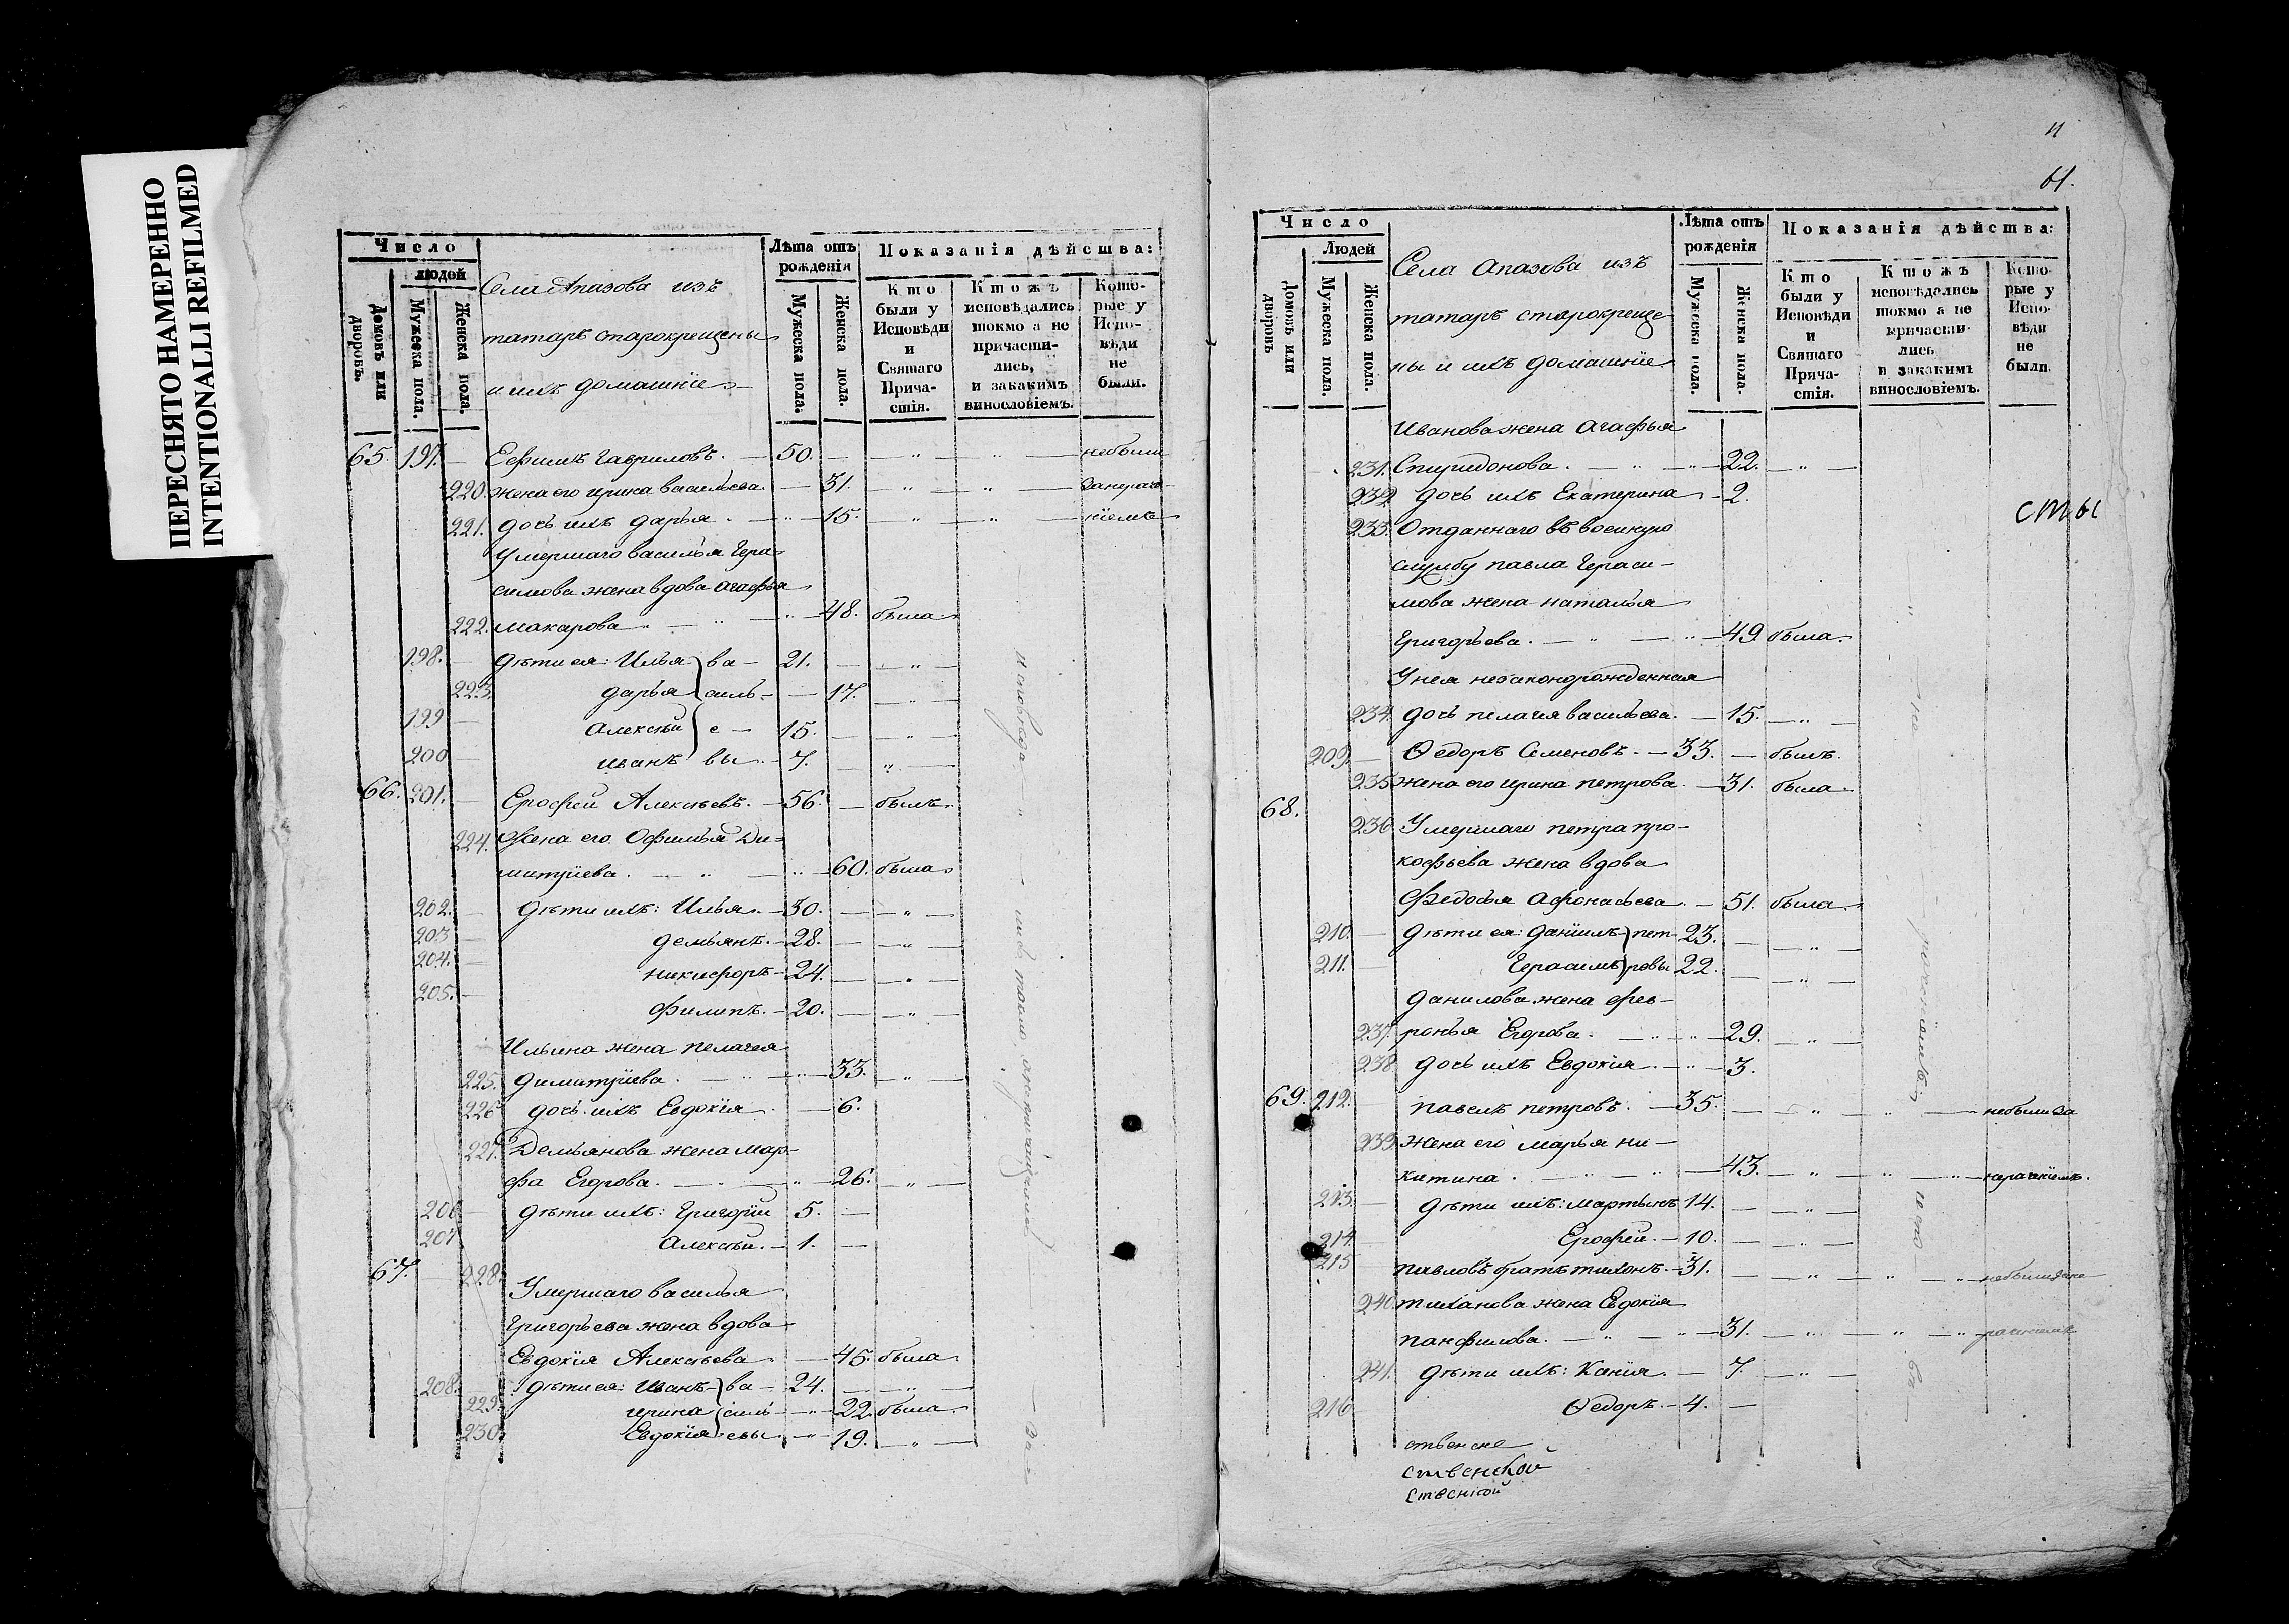 ПЕРЕСНЯТО НАМЕРЕННО
INTENTIONALLI REFILMED
Число
людей
Домовъ или дворовъ.
Мужеска пола.
Женска пола.
Села Апазова изъ
татаръ старокрещены
и ихъ домашніе
Лѣта отъ рожденія
Мужеска пола.
Женска пола.
Показанія дѣйства:
Кто были у Исповѣди и Святаго Прича-стія.
Ктожъ исповѣдались токмо а не причасти-лись, и закакимъ винословіемъ.
Кото-рые у Испо-вѣди не были.
65. 197. — Ефимъ Гавриловъ. — 50. — — „ — „ — небыли
220. жена его ирина васильева. — 31. „ — „ — занерачѣ-
221. дочь ихъ дарья. — „ — 15. — „ — „ — ніемъ
Умершаго василья Гера-
симова жена вдова агафья
222. макарова — „ — „ — 48. была
198. — дѣти ея: Илья ва- 21. — — „ —
223. дарья силь- — 17. — „ —
199 — алексѣй е — 15. — — „ —
200 — иванъ вы. — 7. — „ —
66. 201. — Ерофей Алексѣевъ. — 56. — былъ.
224. Жена его Офимья Ди-
митріева. — „ — „ — 60. была
202. — дѣти ихъ: Илья. — 30. — — „ —
203 — демьянъ. — 28. — — „ —
204. — никифоръ — 24. — — „ —
205. — филипъ. — 20. — — „ —
Ильина жена пелагея
225. димитріева. — „ — „ — 33. — „ —
226 дочь ихъ Евдокія. — 6.
227. Демьянова жена мар-
фа Егорова. — „ — „ — 26. — „ —
206 — дѣти ихъ: григорій 5. —
207 алексѣй. — 1. —
67. — 228. Умершаго василья
григорьева жена вдова
Евдокія Алексѣева — 45. была
208. дѣти ея: иванъ ва — 24. — — „ —
229. ирина силь — „ — 22. была
230. Евдокія евы. — „ — 19. — „ —
исповѣда „ — ихъ токмо анепричащеніемъ — — За —
11
61.
Число
Людей
Домовъ или дворовъ
Мужеска пола.
Женска пола.
Села апазова изъ
татаръ старокреще-
ны и ихъ домашніе
Лѣта отъ рожденія
Мужеска пола.
Женска пола.
Показанія дѣйства:
Кто были у Исповѣди и Святаго Прича-стія.
Ктожъ исповѣдались токмо а не причасти-лись и закакимъ винословіемъ.
Кото-рые у Испо-вѣди не были.
Иванова жена агафья
231. Спиридонова. — „ — „ — 22. — „ —
232 дочь ихъ Екатерина — 2.
сты
233. Отданнаго въ военную
службу павла гераси-
мова жена наталья
григорьева. — „ — „ — 49 была.
Унея незаконорожденная
234. дочь пелагея васильева. — 15. — „ —
209. — Ѳедоръ Семеновъ. — 33. — былъ.
235 жена его ирина петрова. — 31. была
68.
236 Умершаго петра про-
кофьева жена вдова
Федосья афонасьева. — 51. была.
210. — дѣти ея: даніилъ пет- 23. — — „ —
211. — Герасимъ ровы 22. — — „ —
данилова жена фев-
237. ронья Егорова. — „ — „ — 29. — „ —
238 дочь ихъ Евдокія. — „ — 3.
69. 212. павелъ петровъ. — 35. — — „ — „ — небыли за
239. жена его марья ни-
китина. — „ — „ — 43. — „ — „ — „ — нераченіемъ.
213. — дѣти ихъ: мартынъ 14. — — „ —
214. — Ерофей. — 10. — — „ —
215 павловъ братъ тихонъ. — 31. — — „ — „ — „ — небыли зане
240. тиханова жена Евдокія
панфилова. — „ — „ — 31. — „ — „ — „ — раченіемъ
241. дѣти ихъ: Ксенія. — 7. — „ —
216 — Ѳедоръ. — 4. —
ственской
ственской